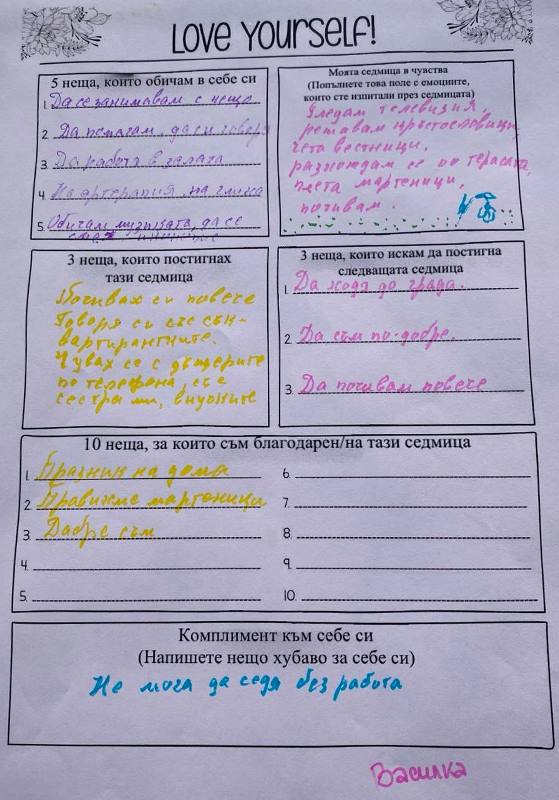 LOVE YOURSELF!
5 неща, които обичам в себе си
1. Да се занимавам с нещо
2. Да помагам, да си говоря
3. Да работя в залата
4. На артерапия, на глина
5. Обичам музиката, да се
Моята седмица в чувства
(Попълнете това поле с емоциите,
които сте изпитали през седмицата)
Гледам телевизия,
решавам кръстословици,
чета вестници,
разхождам се по терасата,
плета мартеници,
почивам.
3 неща, които постигнах
тази седмица
Почивах си повече
Говоря си със съквартирантките.
Чувах се с дъщерите
по телефона, със
сестра ми, внуците
3 неща, които искам да постигна
следващата седмица
1. Да ходя до града.
2. Да съм по-добре.
3. Да почивам повече
10 неща, за които съм благодарен/на тази седмица
1. Празник на дома
2. Правихме мартеници
3. Дабре съм
4.
5.
6.
7.
8.
9.
10.
Комплимент към себе си
(Напишете нещо хубаво за себе си)
Не мога да седя без работа
Василка